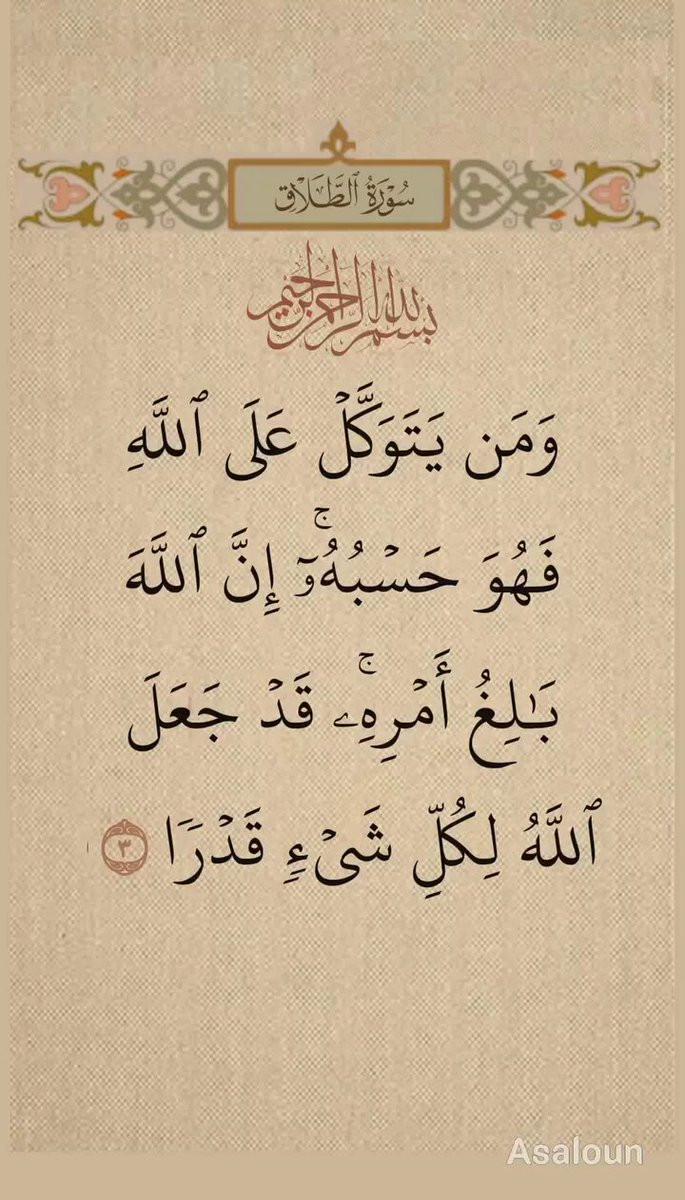 سُوْرَةُ ٱلطَّلَاقِ
بسم الله الرحمن الرحيم
وَمَن يَتَوَكَّلۡ عَلَى ٱللَّهِ
فَهُوَ حَسۡبُهُۥٓۚ إِنَّ ٱللَّهَ
بَـٰلِغُ أَمۡرِهِۦۚ قَدۡ جَعَلَ
ٱللَّهُ لِكُلِّ شَیۡءࣲ قَدۡرࣰا ٣
Asaloun